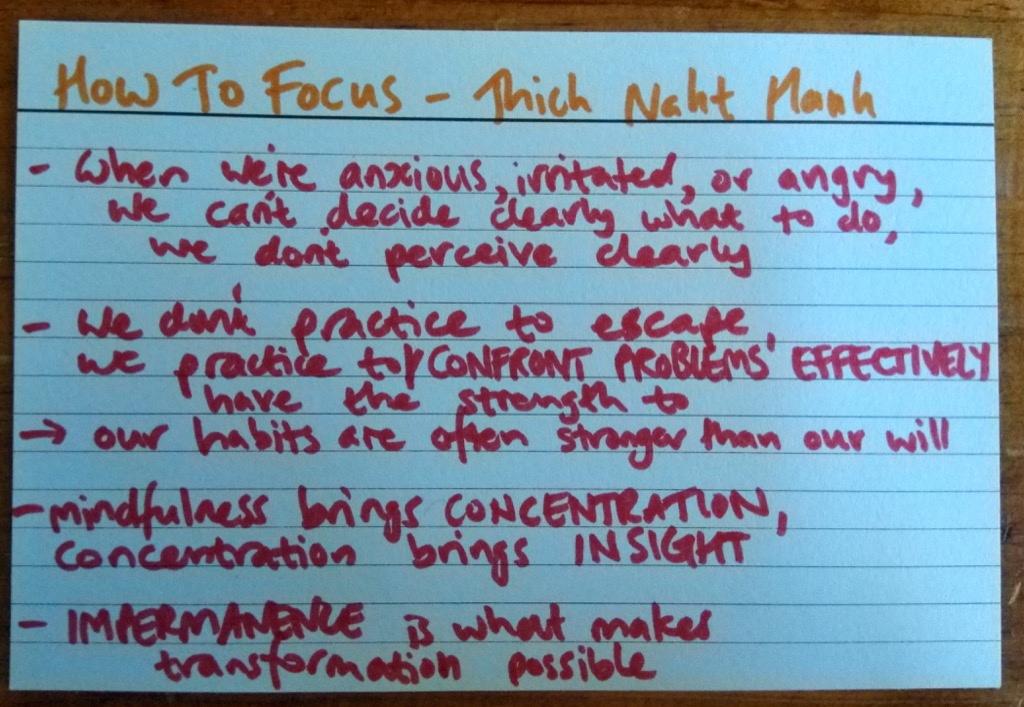 How To Focus - Thich Naht Hanh
- When we're anxious, irritated, or angry,
we can't decide clearly what to do,
we don't perceive clearly
- We don't practice to escape,
we practice to/CONFRONT PROBLEMS EFFECTIVELY
have the strength to
→ our habits are often stronger than our will
- mindfulness brings CONCENTRATION,
concentration brings INSIGHT
- IMPERMANENCE is what makes
transformation possible